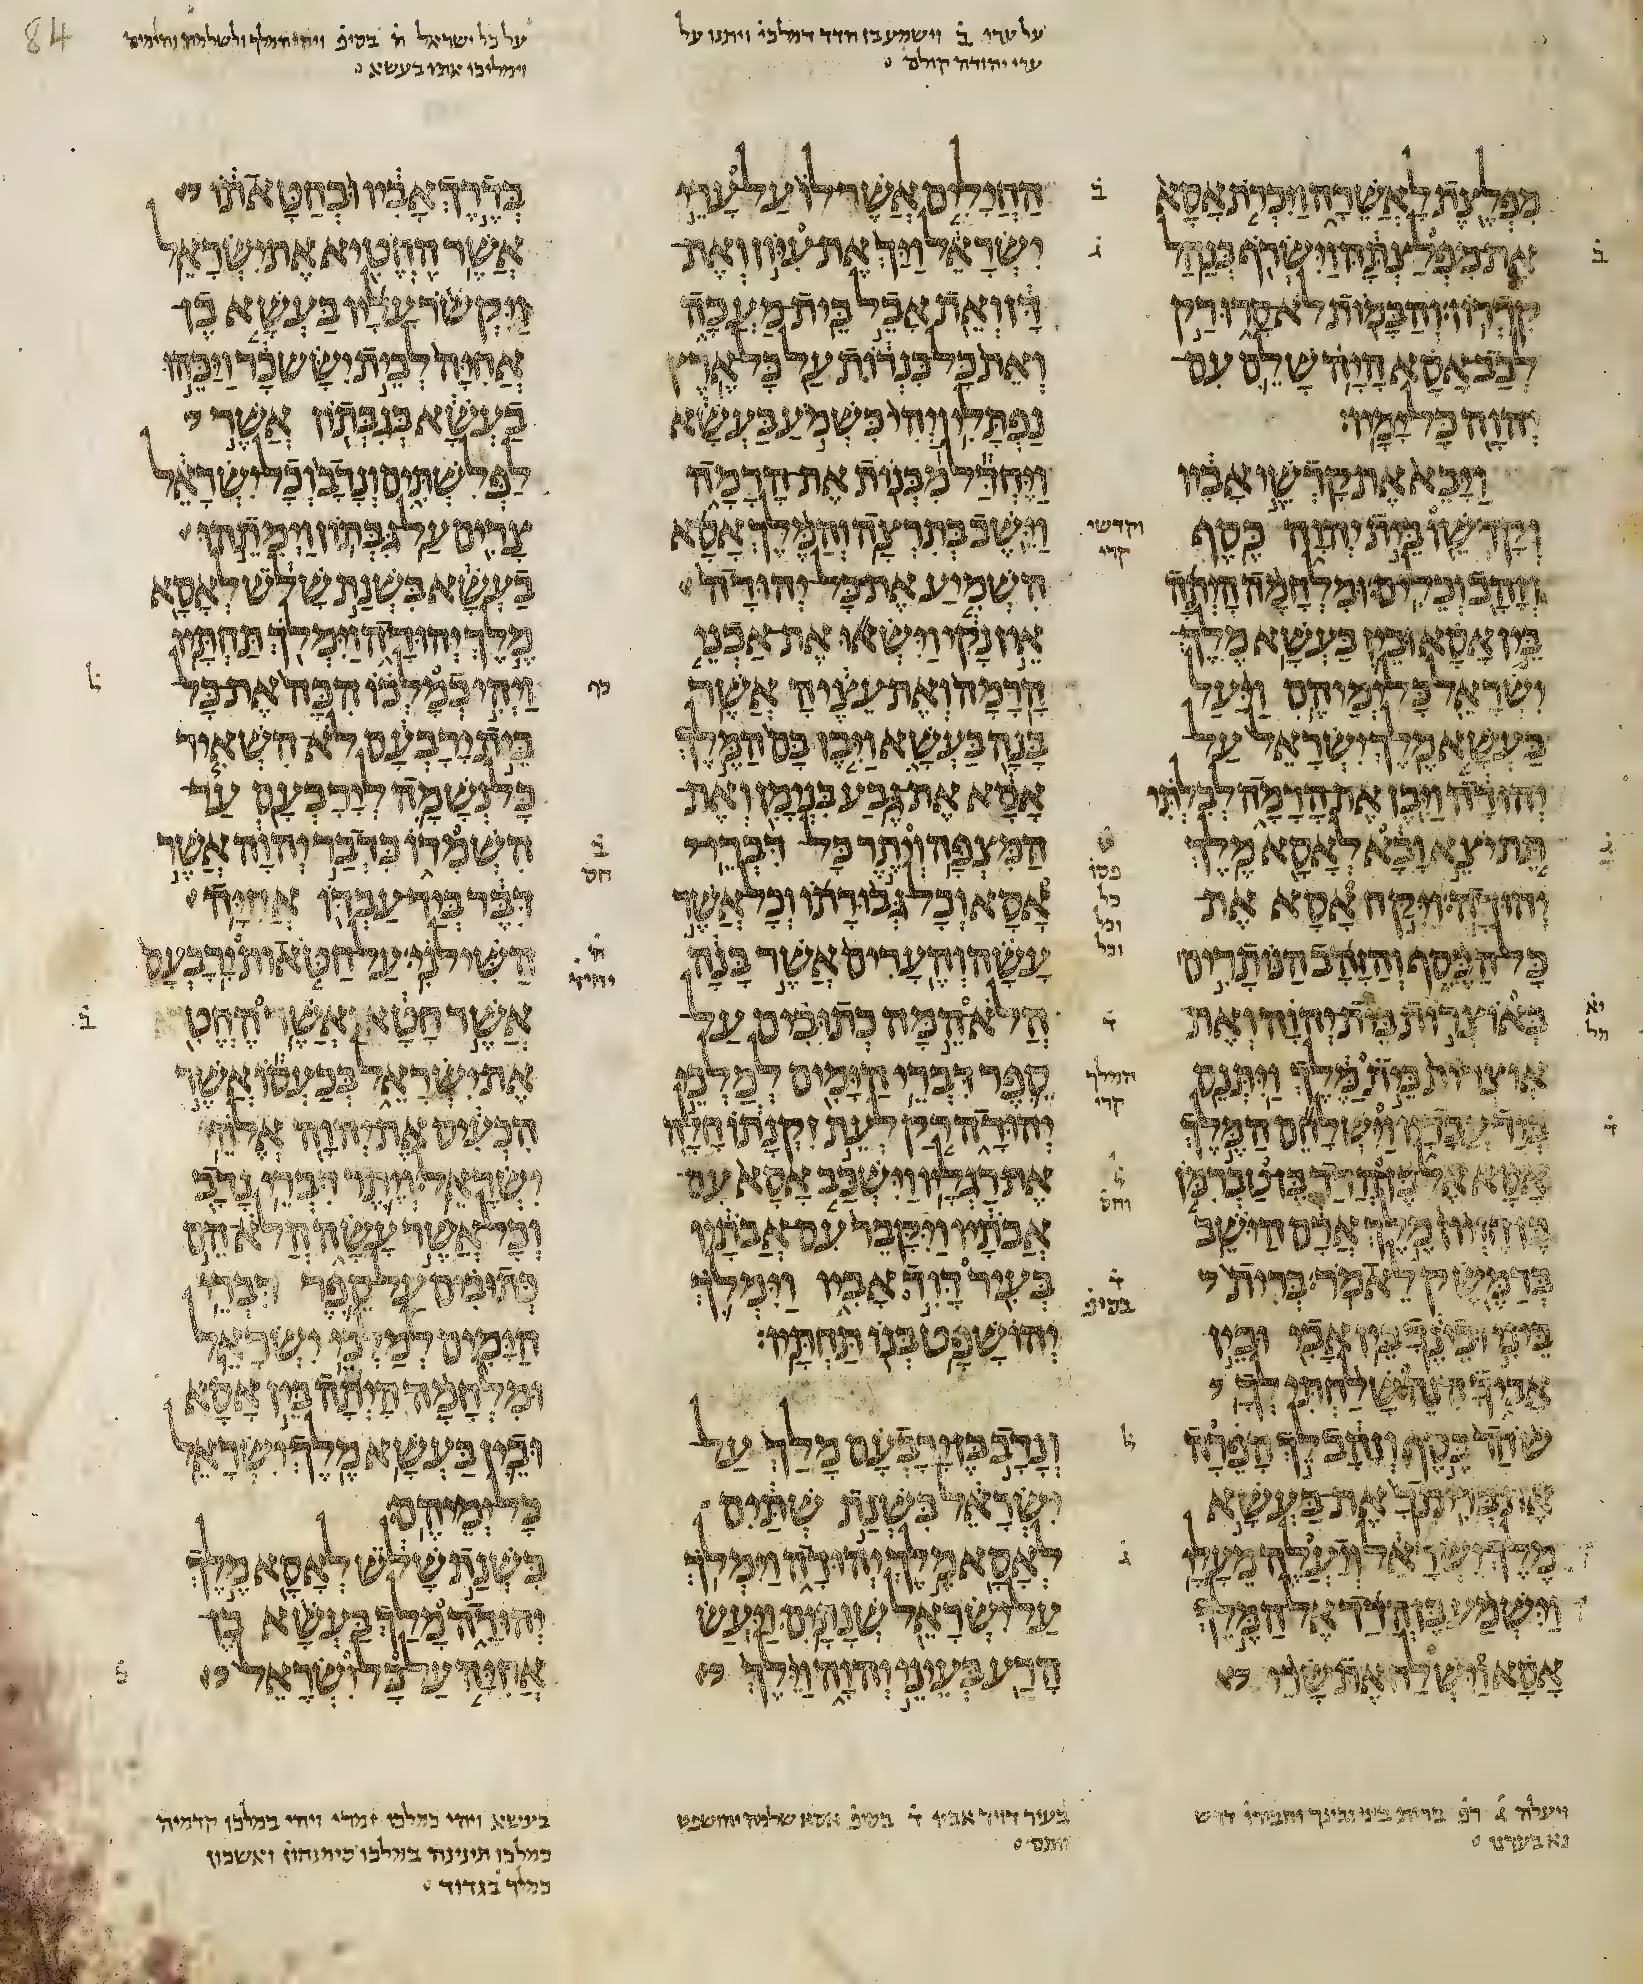 על ערי ב וישמע בן הדד דמלכי ויתנו על
ערי יהודה קולם
על כל ישראל ח בסיפ ויהי המלך
וימליכו אתו בעשא
מפלצת לאשרה ויכרת אסא
את מפלצתה וישרף בנחל
קדרון והבמות לא סרו רק
לבב אסא היה שלם עם
יהוה כל ימיו
ויבא את קדשי אביו
וקדשו בית יהוה כסף
וזהב וכלים ומלחמה היתה
בין אסא ובין בעשא מלך
ישראל כל ימיהם ויעל
בעשא מלך ישראל על
יהודה ויבן את הרמה לבלתי
תת יצא ובא לאסא מלך
יהודה ויקח אסא את
כל הכסף והזהב הנותרים
באוצרות בית יהוה ואת
אוצרות בית מלך ויתנם
ביד עבדיו וישלחם המלך
אסא אל בן הדד בן טברמן
בן חזיון מלך ארם הישב
בדמשק לאמר ברית
ביני ובינך בין אבי ובין
אביך הנה שלחתי לך
שחד כסף וזהב לך הפרה
את בריתך את בעשא
מלך ישראל ויעלה מעלי
וישמע בן הדד אל המלך
אסא וישלח את שרי
החילים אשר לו על ערי
ישראל ויך את עיון ואת
דן ואת אבל בית מעכה
ואת כל כנרות על כל ארץ
נפתלי ויהי כשמע בעשא
ויחדל מבנות את הרמה
וישב בתרצה והמלך אסא
השמיע את כל יהודה
אין נקי וישאו את אבני
הרמה ואת עציה אשר
בנה בעשא ויבן בם המלך
אסא את גבע בנימן ואת
המצפה ויתר כל דברי
אסא וכל גבורתו וכל אשר
עשה והערים אשר בנה
הלא המה כתובים על
ספר דברי הימים למלכי
יהודה רק לעת זקנתו חלה
את רגליו וישכב אסא עם
אבתיו ויקבר עם אבתיו
בעיר דויד אביו וימלך
יהושפט בנו תחתיו
ונדב בן ירבעם מלך על
ישראל בשנת שתים
לאסא מלך יהודה וימלך
על ישראל שנתים ויעש
הרע בעיני יהוה וילך
בדרך אביו ובחטאתו
אשר החטיא את ישראל
ויקשר עליו בעשא בן
אחיה לבית יששכר ויכהו
בעשא בגבתון אשר
לפלשתים ונדב וכל ישראל
צרים על גבתון וימתהו
בעשא בשנת שלש לאסא
מלך יהודה וימלך תחתיו
ויהי כמלכו הכה את כל
בית ירבעם לא השאיר
כל נשמה לירבעם עד
השמדו כדבר יהוה אשר
דבר ביד עבדו אחיה
השילני על חטאות ירבעם
אשר חטא ואשר החטיא
את ישראל בכעסו אשר
הכעיס את יהוה אלהי
ישראל ויתר דברי נדב
וכל אשר עשה הלא הם
כתובים על ספר דברי
הימים למלכי ישראל
ומלחמה היתה בין אסא
ובין בעשא מלך ישראל
כל ימיהם
בשנת שלש לאסא מלך
יהודה מלך בעשא בן
אחיה על כל ישראל
וקדשי
קרי
המלך
קרי
ויעלה ג רפ ברית ביני ובינך וחברו דרש
נא בעדנו
בעיר דויד אביו ד בסיפ אסא שלמה יהושפט
יותם
בעשא ויהי כמלכו זמרי ויהי במלכו קדמיה
כמלכו תינינה במלכו סימנהון ואשכון
כמלך בגדוד